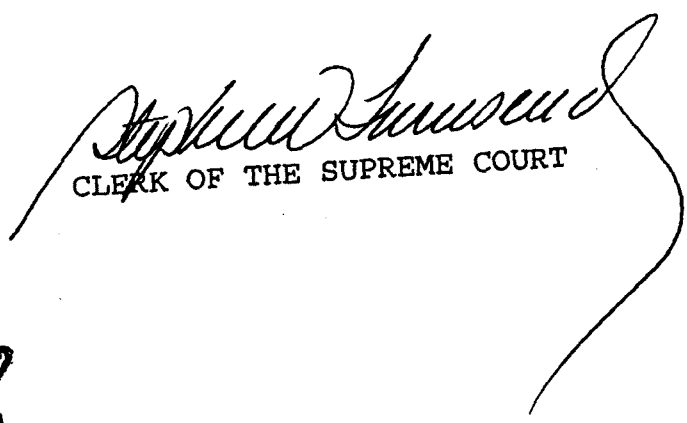 Stephen W Townsend
CLERK OF THE SUPREME COURT